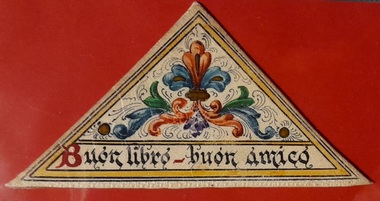 Buon libro - buon amico